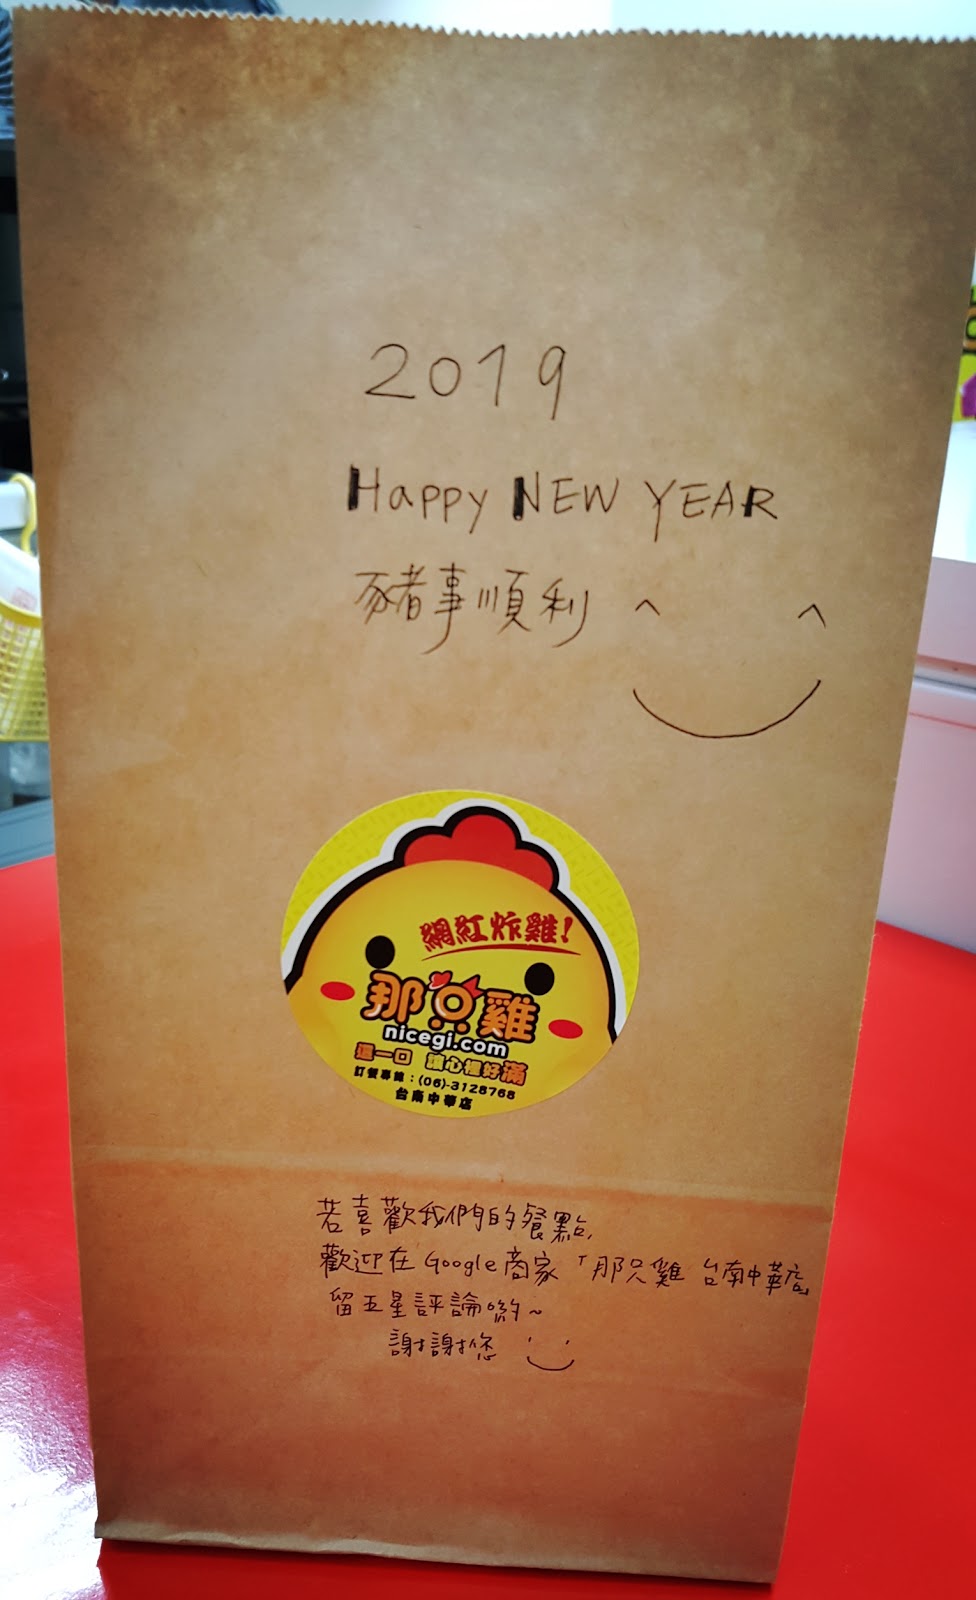 2019
Happy NEW YEAR
豬事順利
網紅炸雞!
那只雞
nicegi.com
這一口 讓心裡好滿
訂餐專線:(06)-3128768
台南中華店
若喜歡我們的餐點,
歡迎在Google商家「那只雞 台南中華店」
留五星評論喲~
謝謝您